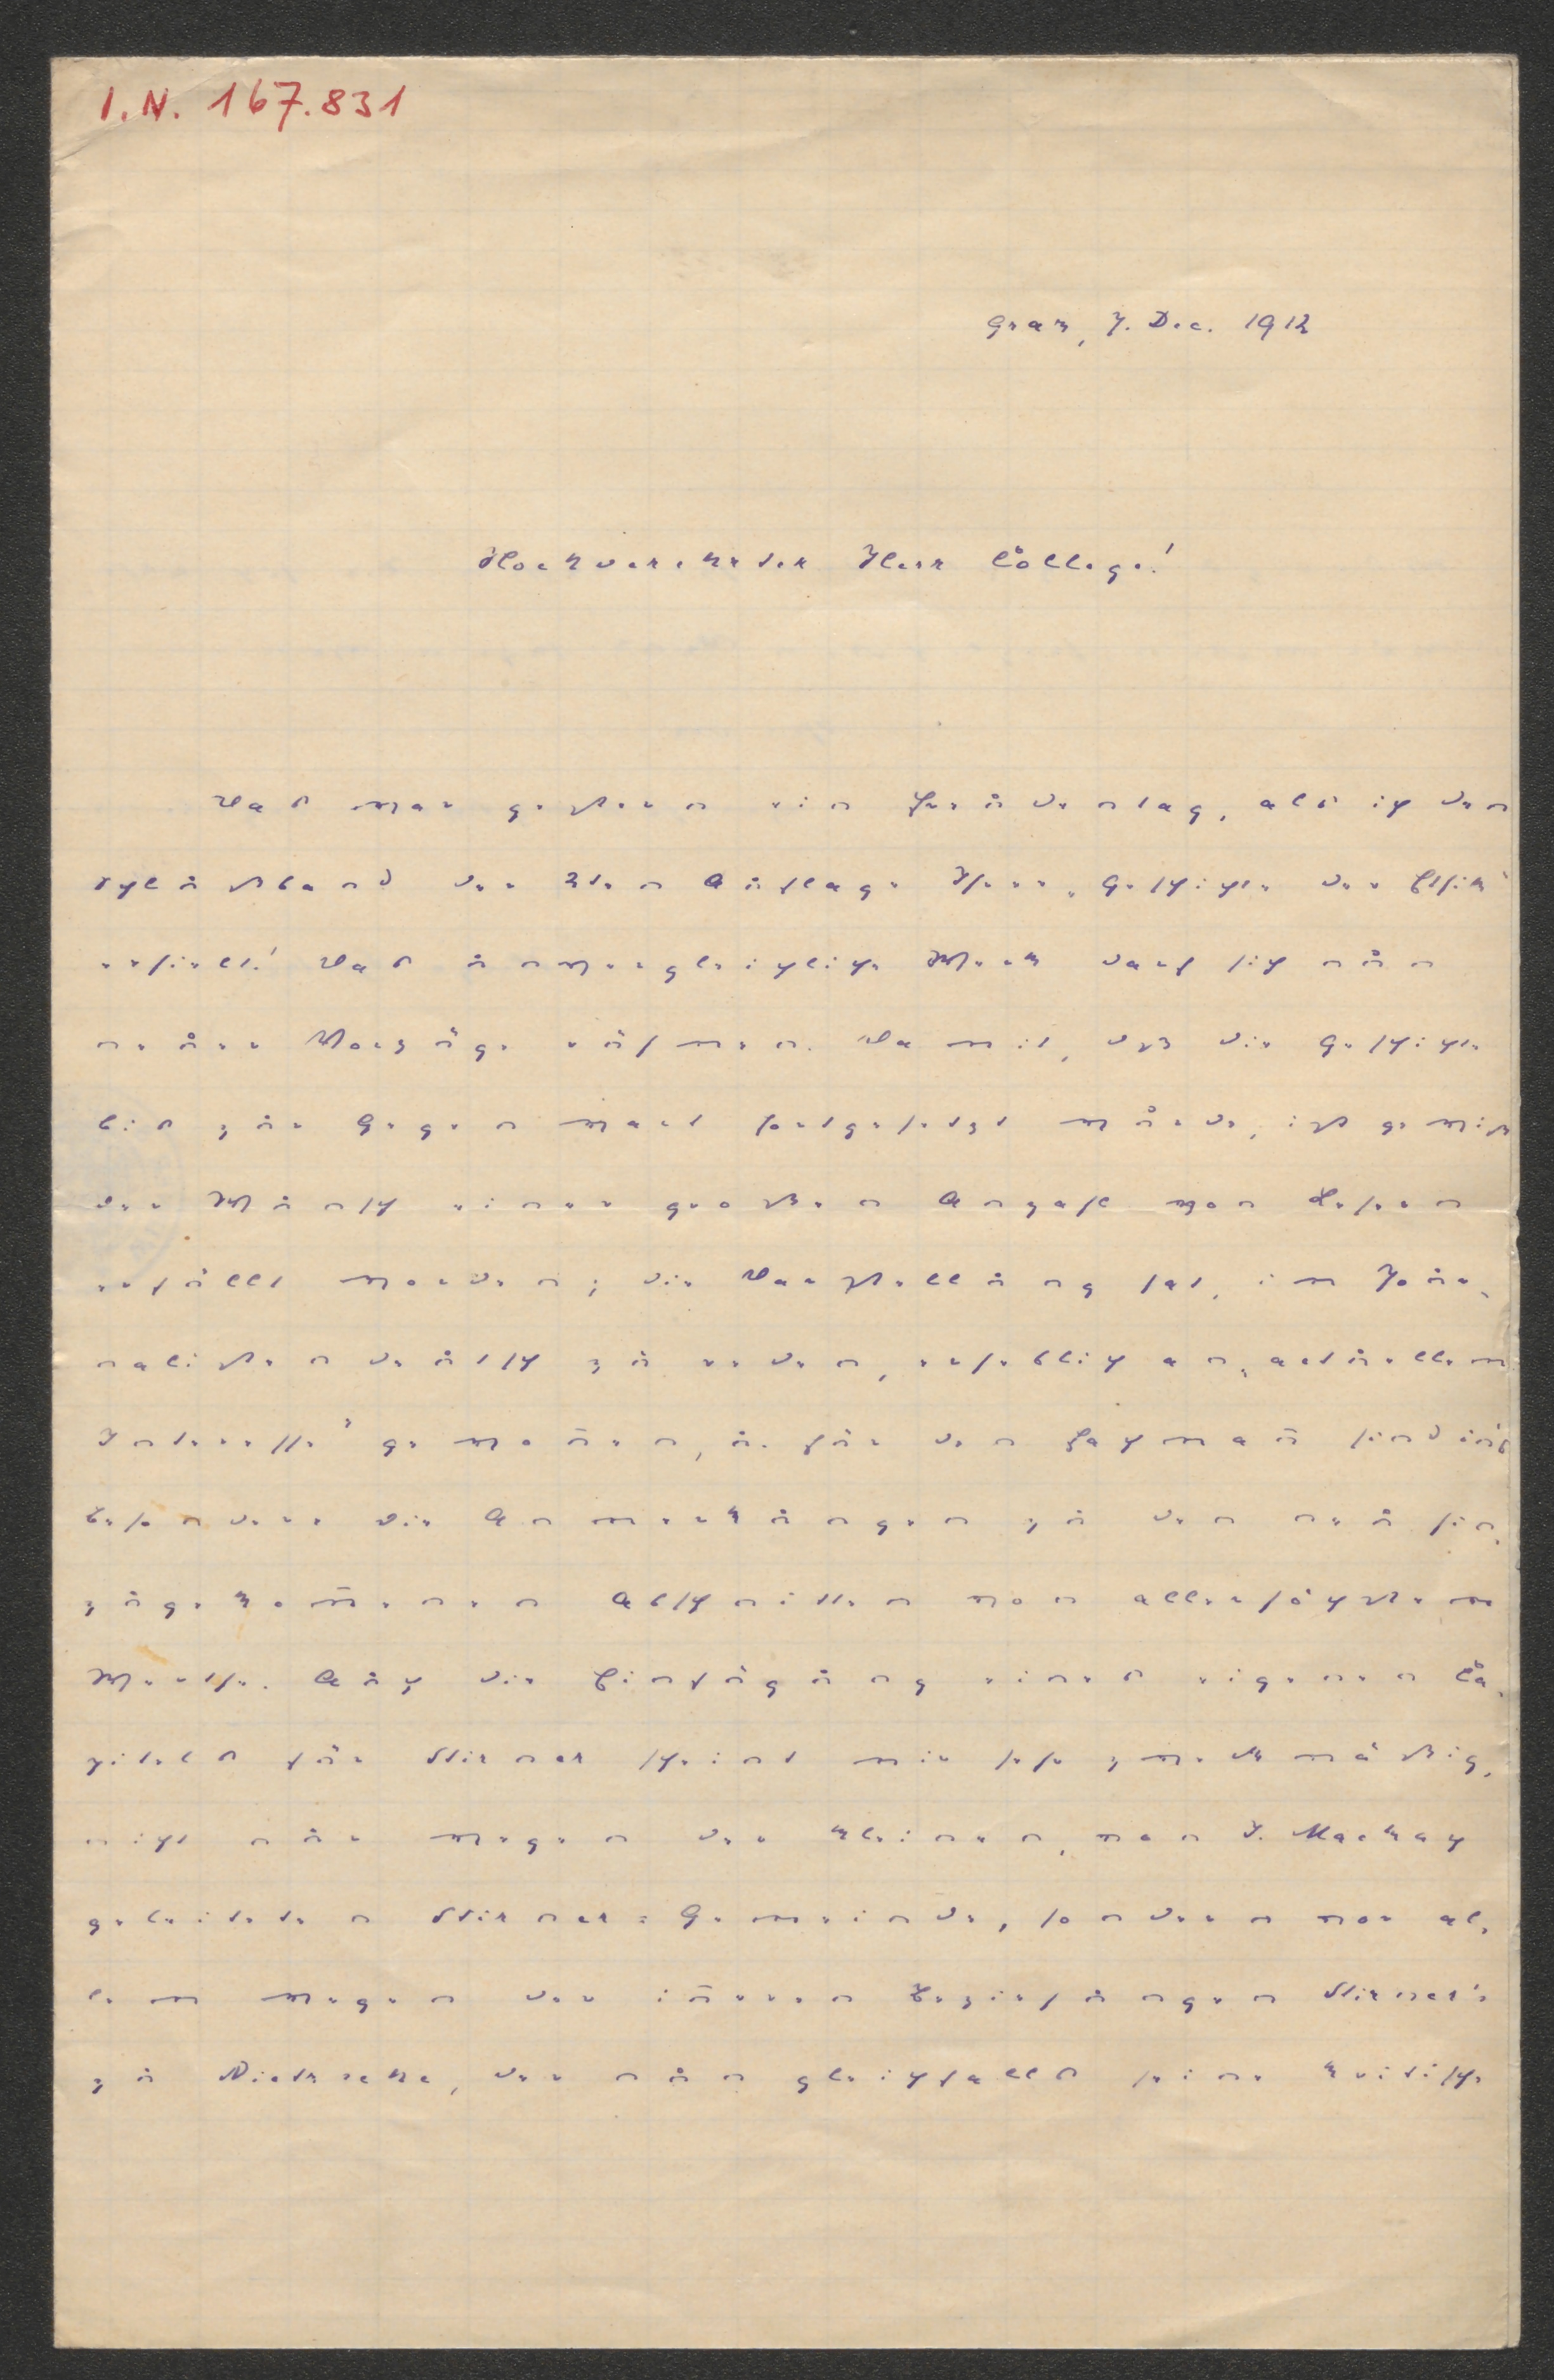 I.N. 167.831
Graz, 7. Dec. 1912
Hochverehrter Herr College!
Das war gestern ein Freudentag, als ich den
Schlußband der 2ten Auflage Ihrer „Geschichte der Ethik“
erhielt! Das unvergleichliche Werk darf sich nun
neuer Vorzüge rühmen. Damit, daß die Geschichte
bis zur Gegenwart fortgesetzt wurde, ist gewiß
der Wunsch einer großen Anzahl von Lesern
erfüllt worden; die Darstellung hat, im Jour-
nalistendeutsch zu reden, erheblich an „actuellem
Interesse“ gewonnen, u. für den Fachmann sind ins-
besondere die Anmerkungen zu den neu hin-
zugekommenen Abschnitten von allerhöchstem
Werthe. Auch die Einfügung eines eigenen Ca-
pitels für Stirner scheint mir sehr zweckmäßig,
nicht nur wegen der kleinen, von J. Mackay
geleiteten Stirner-Gemeinde, sondern vor al-
lem wegen der inneren Beziehungen Stirner's
zu Nietzsche, der nun gleichfalls seine kritische